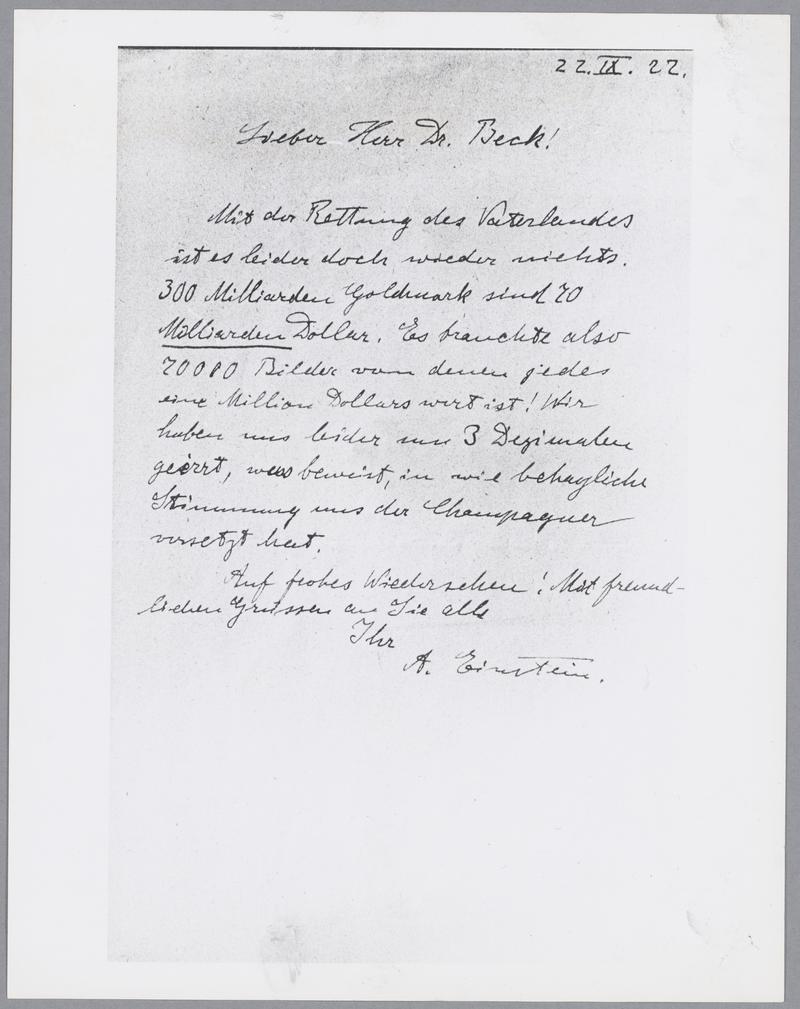 22.IX.22.
Lieber Herr Dr. Beck!
Mit der Rettung des Vaterlandes
ist es leider doch wieder nichts.
300 Milliarden Goldmark sind 70
Milliarden Dollar. Es brauchte also
70000 Bilder von denen jedes
eine Million Dollars wert ist! Wir
haben uns leider um 3 Dezimalen
geirrt, was beweist, in wie behagliche
Stimmung uns der Champagner
versetzt hat.
Auf frohes Wiedersehen! Mit freund-
lichen Grüssen an Sie alle
Ihr
A. Einstein.